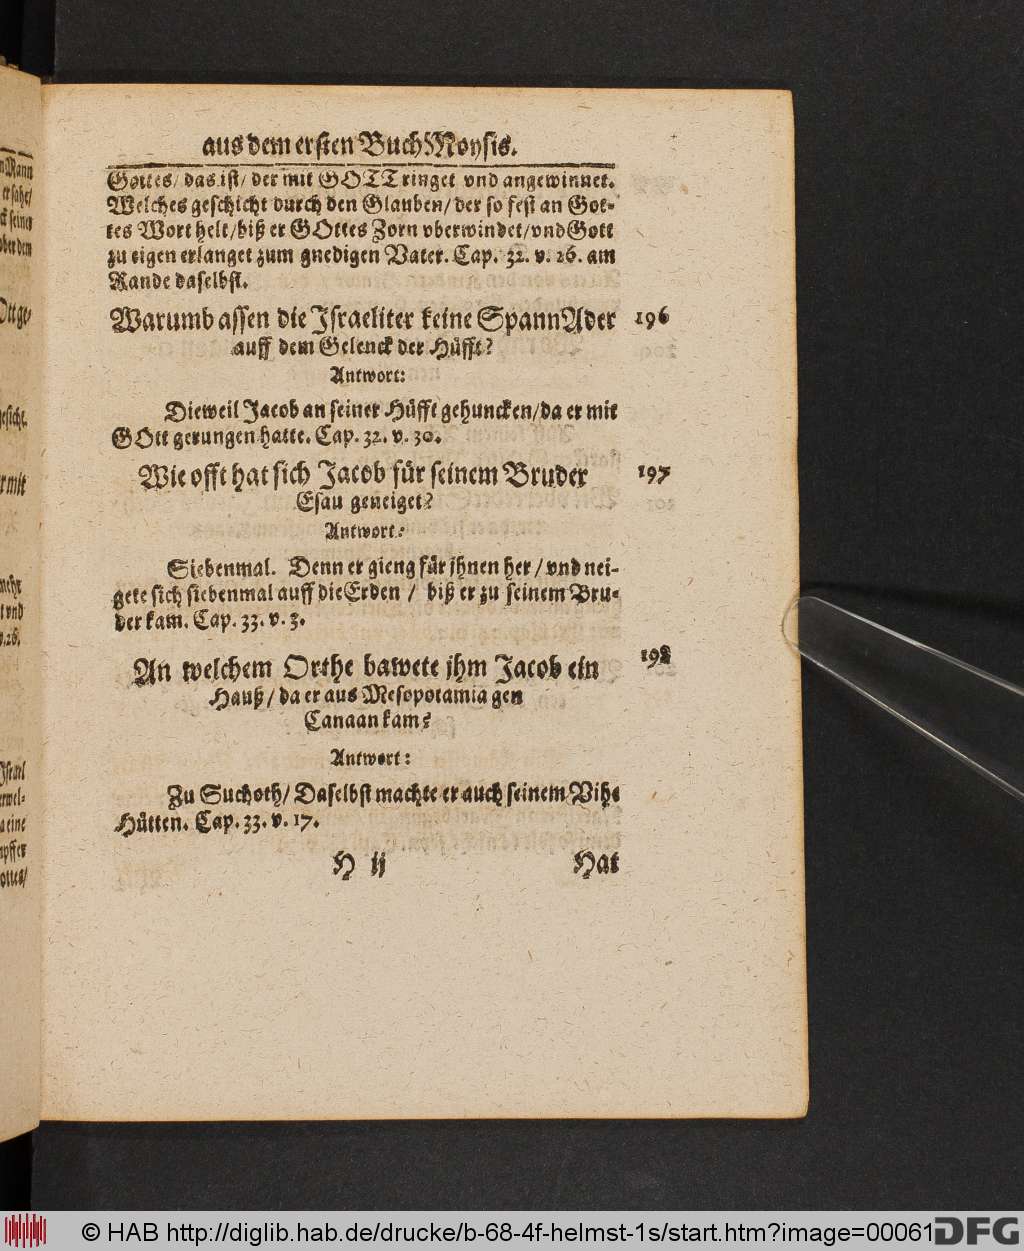 aus dem ersten Buch Moysis.
Gottes/ das ist/ der mit GOTT ringet vnd angewinnet.
Welches geschicht durch den Glauben/ der so fest an Got-
tes Wort helt/ biß er GOttes Zorn vberwindet/ vnd Gott
zu eigen erlanget zum gnedigen Vater. Cap. 32. v. 26. am
Rande daselbst.
Warumb assen die Israeliter keine SpannAder 196
auff dem Gelenck der Hüfft?
Antwort:
Dieweil Jacob an seiner Hüfft gehuncken/ da er mit
GOtt gerungen hatte. Cap. 32. v. 30.
Wie offt hat sich Jacob für seinem Bruder 197
Esau geneiget?
Antwort:
Siebenmal. Denn er gieng für jhnen her/ vnd nei-
gete sich siebenmal auff die Erden / biß er zu seinem Bru-
der kam. Cap. 33. v. 3.
An welchem Orthe bawete jhm Jacob ein 198
Hauß/ da er aus Mesopotamia gen
Canaan kam?
Antwort:
Zu Suchoth/ Daselbst machte er auch seinem Vihe
Hütten. Cap. 33. v. 17.
H ij Hat
© HAB http://diglib.hab.de/drucke/b-68-4f-helmst-1s/start.htm?image=00061
DFG